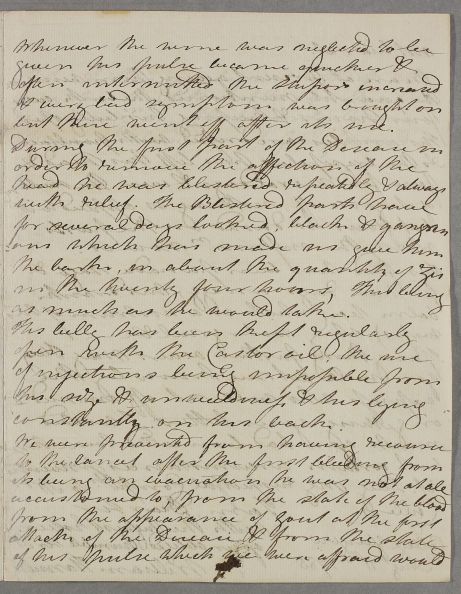 Whenever the wine was neglected to be
given his pulse became quicker &
often intermitted the stupor increased
& every bad symptom was bought on
but these went off after its use.
During the first part of the Disease in
order to remove the affection of the
head he was blistered repeatedly & always
with relief. The Blistered parts have
for several days looked, black & gangren
ous which has made us give him
the bark, in about the quantity of
in the twenty four hours, this being
as much as he would take.
His belly has been kept regularly
open with the Castor oil, the use
of injections being impossible from
his size & unweildiness & his lying
constantly on his back.
We were prevented from having recourse
to the lancet after the first bleeding from
its being an evacuation he was not at all
accustomed to, from the state of the blood
from the appearance of Gout at the first
attack of the Disease & from the state
of his pulse which we were affraid would